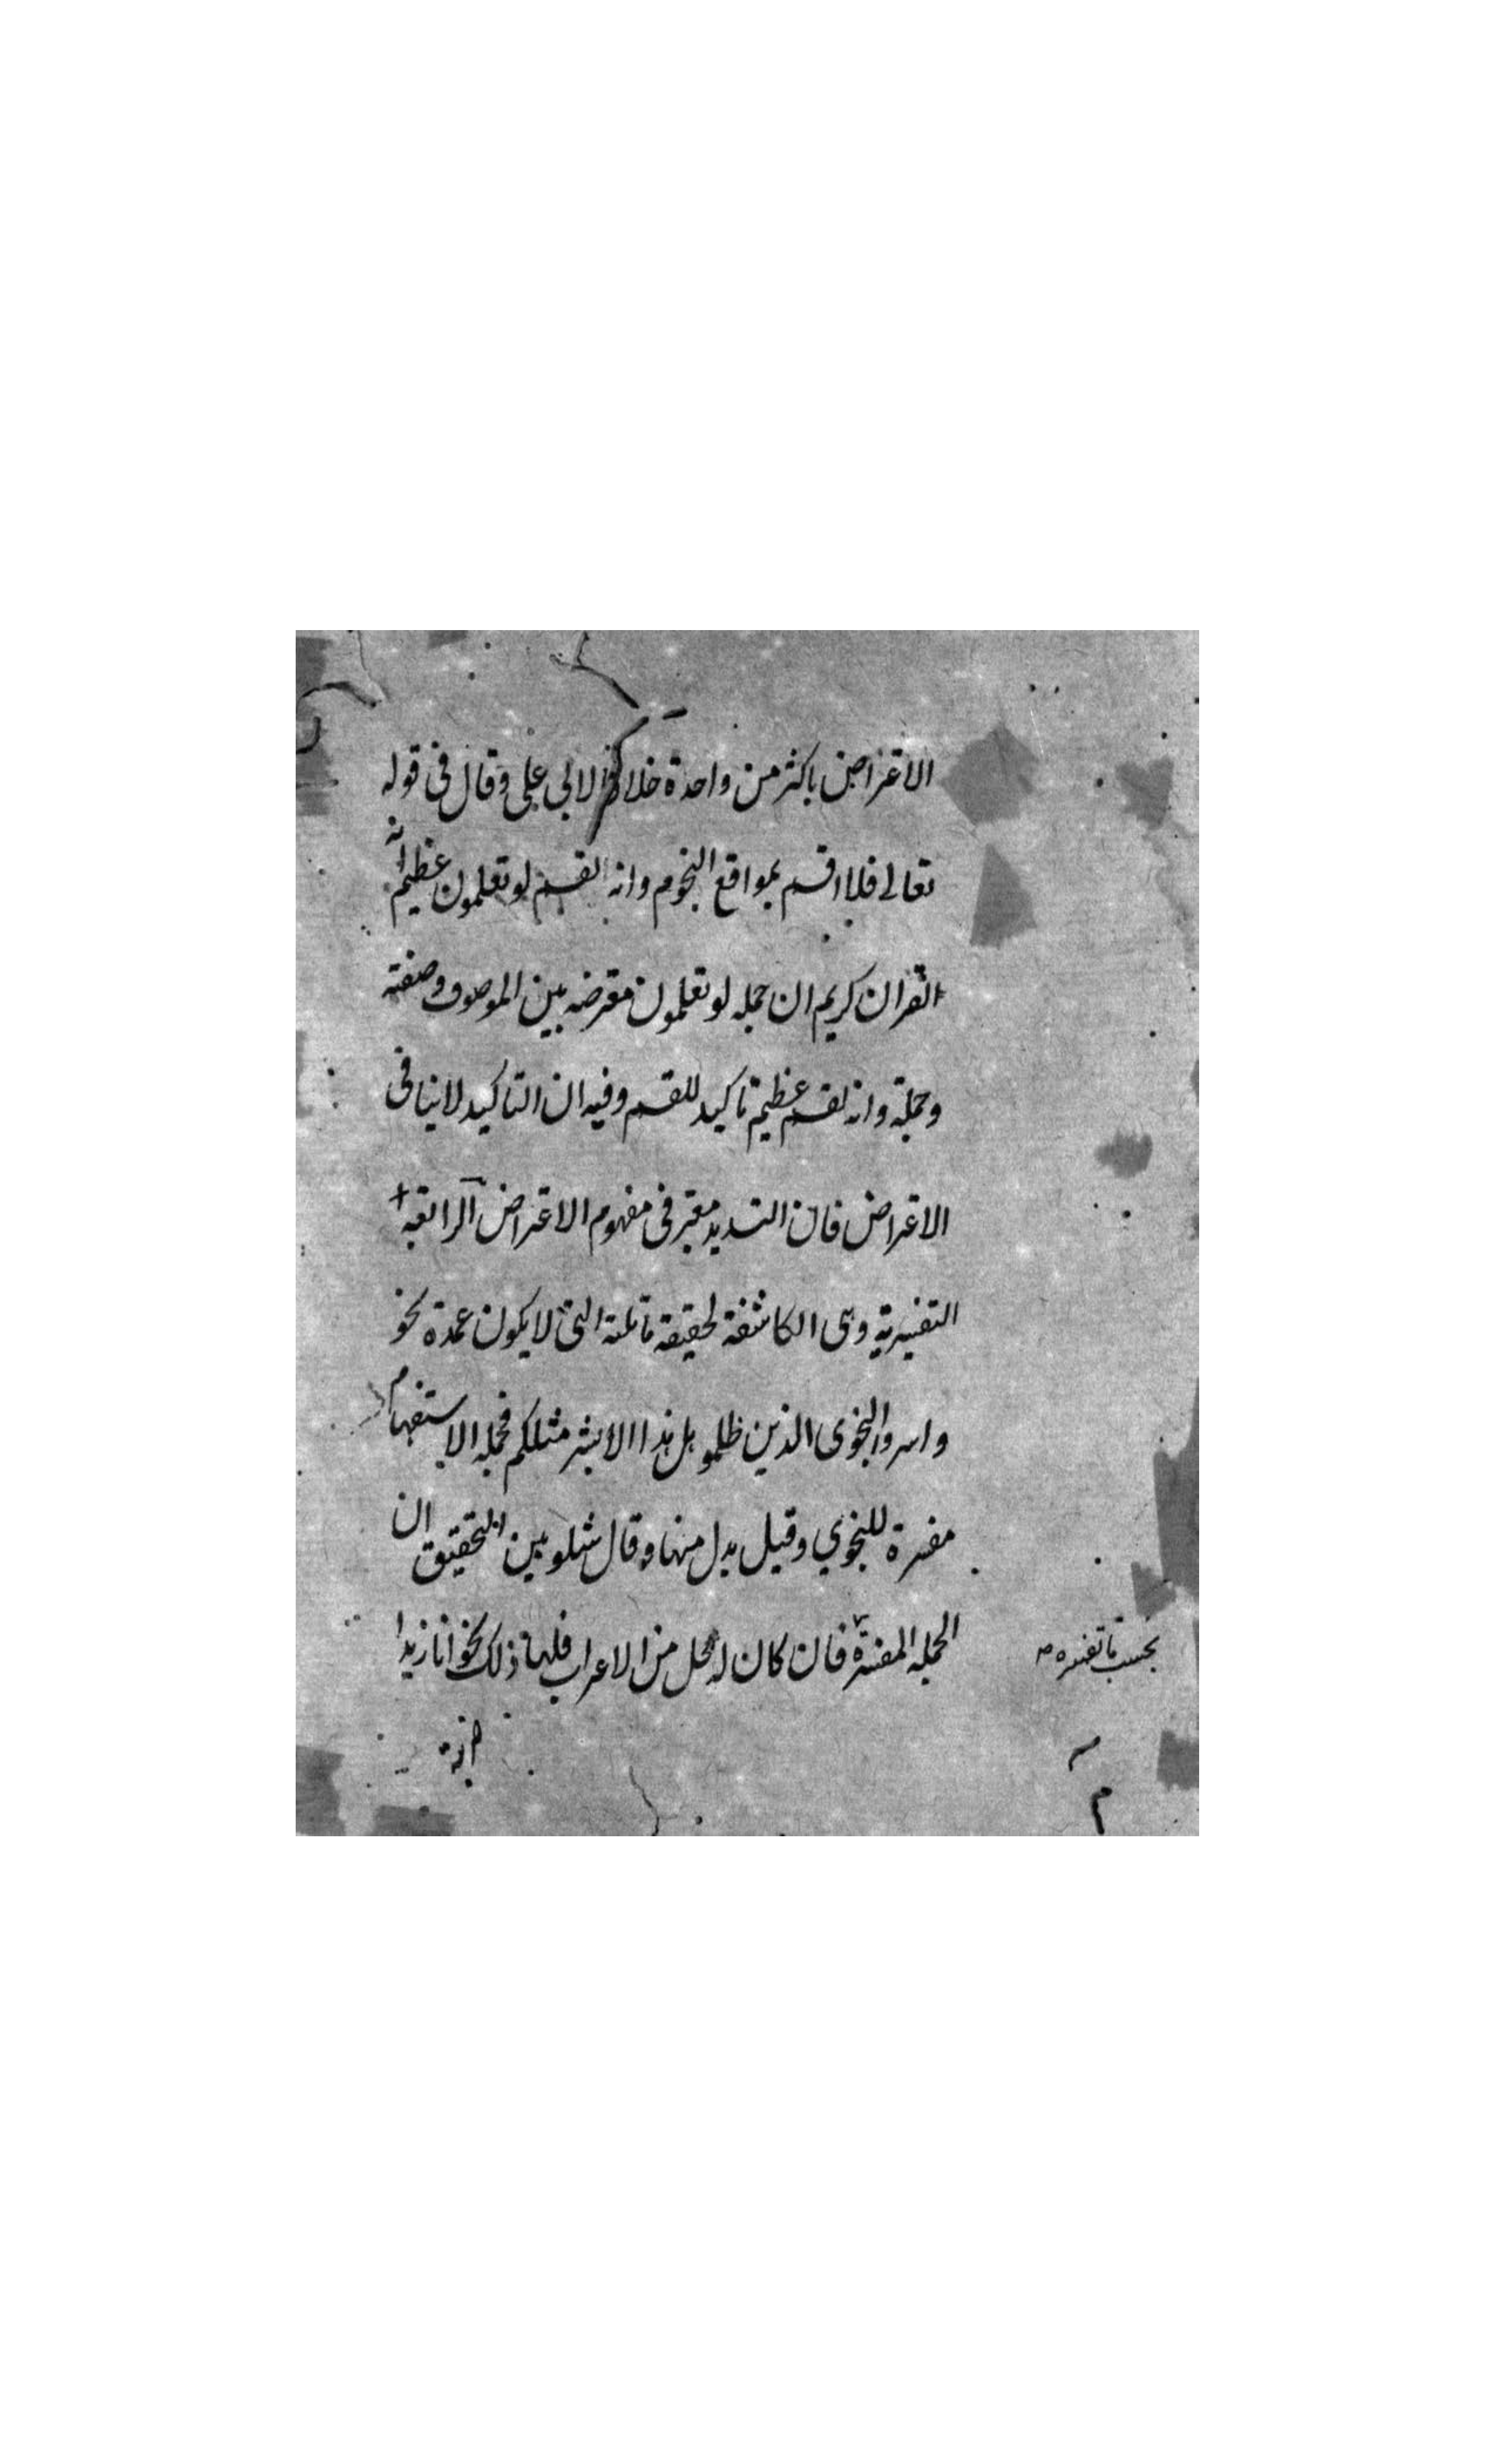 الاعتراض باكثر من واحدة خلافا لابى على وقال فى قوله
تعالى فلا اقسم بمواقع النجوم وانه لقسم لو تعلمون عظيم انه
لقران كريم ان جمله لو تعلمون معترضه بين الموصوف وصفته
وجملة وانه لقسم عظيم تاكيد للقسم وفيه ان التاكيد لا ينافى
الاعتراض فان التسديد معتبر فى مفهوم الاعتراض الرابعة
التفسيرية وهى الكاشفة لحقيقة ما تلته التى لا يكون عمدة نحو
واسروا النجوى الذين ظلموا هل هذا الا بشر مثلكم فجمله الاستفهام
مفسرة للنجوي وقيل بدل منها وقال شلوبين التحقيق ان
الجمله المفسرة فان كان له محل من الاعراب فلها ذلك نحو انا زيدا
بحسب ما تفسره